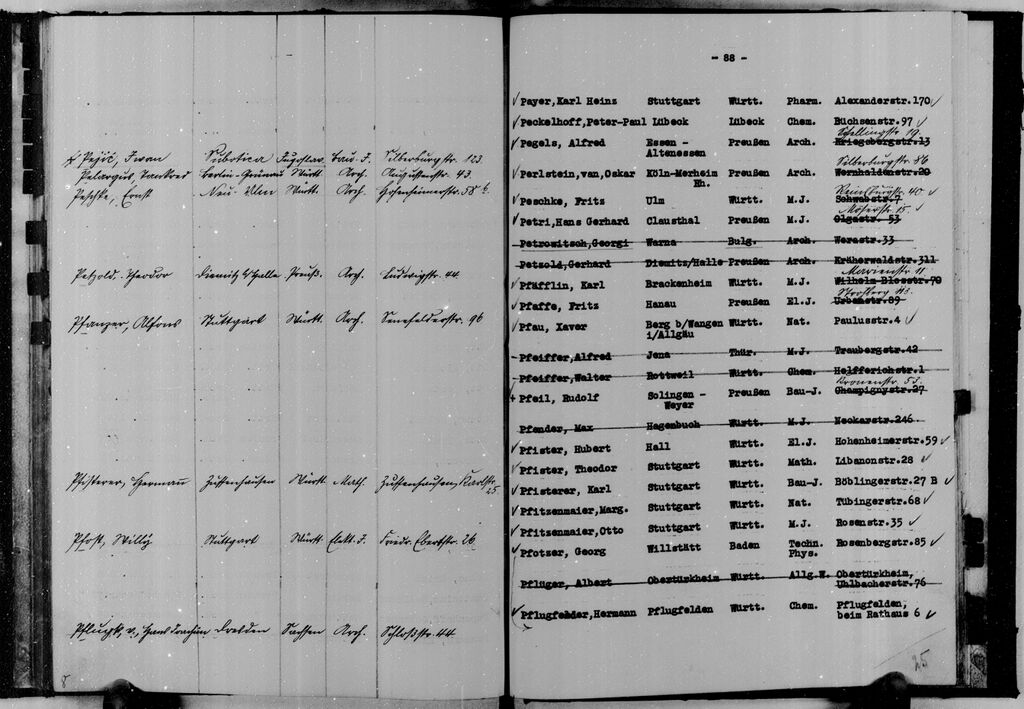 x Pejić, Iwan Subotica Jugoslav. Bau-I. Silberburgstr. 123
Pelargus, Berlin-Grunau Württ. Arch. Augustenstr. 43.
Peschke, Ernst Neu-Ulm Württ. Arch. Hohenheimerstr. 58
Petzold, Theodor Diemitz b/Halle Preuß. Arch. Ludwigstr. 44
Pfanzer, Alfons Stuttgart Württ. Arch. Senefelderstr. 96
Pfisterer, Hermann Zuffenhausen Württ. Math. Zuffenhausen, Karlstr. 25.
Pfost, Willy Stuttgart Württ. Elekt. I. Friedr. Ebertstr. 26
Pflugk, v., Hans Joachim Dresden Sachsen Arch. Schloßstr. 44
8
- 88 -
✓ Payer,Karl Heinz Stuttgart Württ. Pharm. Alexanderstr.170 ✓
✓ Peckelhoff,Peter-Paul Lübeck Lübeck Chem. Büchsenstr.97 ✓
Schellingstr. 19.
✓ Pegels, Alfred Essen - Preußen Arch. Kriegsbergstr.13
Altenessen
Silberburgstr. 86
✓ Perlstein,van,Oskar Köln-Merheim Preußen Arch. Wernhaldenstr.20
Rh.
Reinsburgstr. 40 ✓
✓ Peschke, Fritz Ulm Württ. M.J. Schwabstr.7
Moserstr. 15. ✓
✓ Petri,Hans Gerhard Clausthal Preußen M.J. Olgastr. 53
Petrowitsch,Georgi Warna Bulg. Arch. Werastr.33
Petzold,Gerhard Diemitz/Halle Preußen Arch. Kräherwaldstr.311
Marienstr. 11
✓ Pfäfflin, Karl Brackenheim Württ. M.J. Wilhelm-Blosstr.70
✓ Pfaffe, Fritz Hanau Preußen El.J. Urbanstr.89
✓ Pfau, Xaver Berg b/Wangen Württ. Nat. Paulusstr.4 ✓
i/Allgäu
Pfeiffer,Alfred Jena Thür. M.J. Traubergstr.42
Pfeiffer,Walter Rottweil Württ. Chem. Helfferichstr.1
Kronenstr. 53.
+ Pfeil, Rudolf Solingen - Preußen Bau-J. Champignystr.27
Weyer
Pfender, Max Hagenbuch Württ. M.J. Neckarstr.246
✓ Pfister, Hubert Hall Württ. El.J. Hohenheimerstr.59 ✓
✓ Pfister, Theodor Stuttgart Württ. Math. Libanonstr.28 ✓
✓ Pfisterer, Karl Stuttgart Württ. Bau-J. Böblingerstr.27 B ✓
✓ Pfitzenmaier,Marg. Stuttgart Württ. Nat. Tübingerstr.68 ✓
✓ Pfitzenmaier,Otto Stuttgart Württ. M.J. Rosenstr.35 ✓
✓ Pfotzer, Georg Willstätt Baden Techn. Rosenbergstr.85 ✓
Phys.
Pflüger, Albert Obertürkheim Württ. Allg.W. Obertürkheim,
Uhlbacherstr.76
✓ Pflugfelder,Hermann Pflugfelden Württ. Chem. Pflugfelden,
beim Rathaus 6 ✓
25